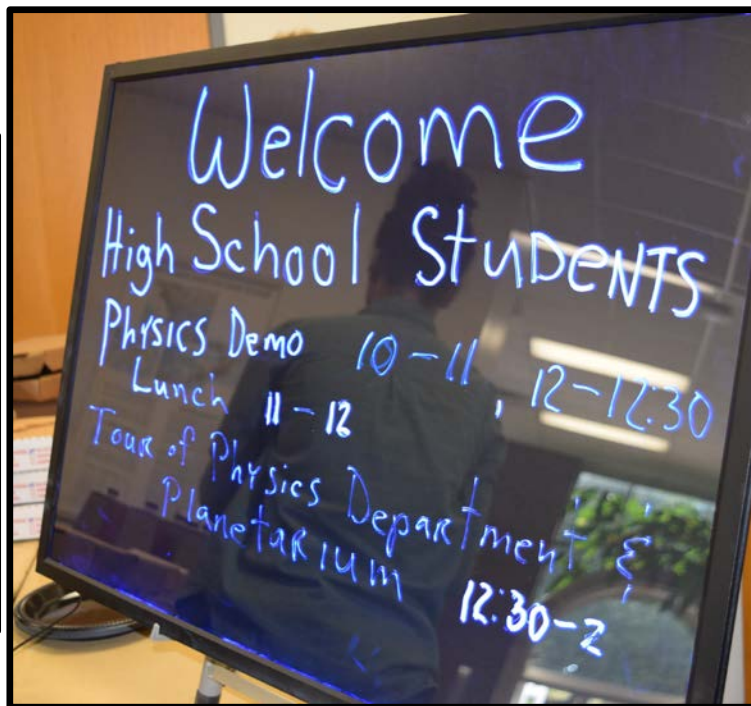 Welcome
High School StuDeNTS
PhysIcs Demo 10-11, 12-12:30
Lunch 11-12
Tour of Physics Department &
PlanetaRIum 12:30-2